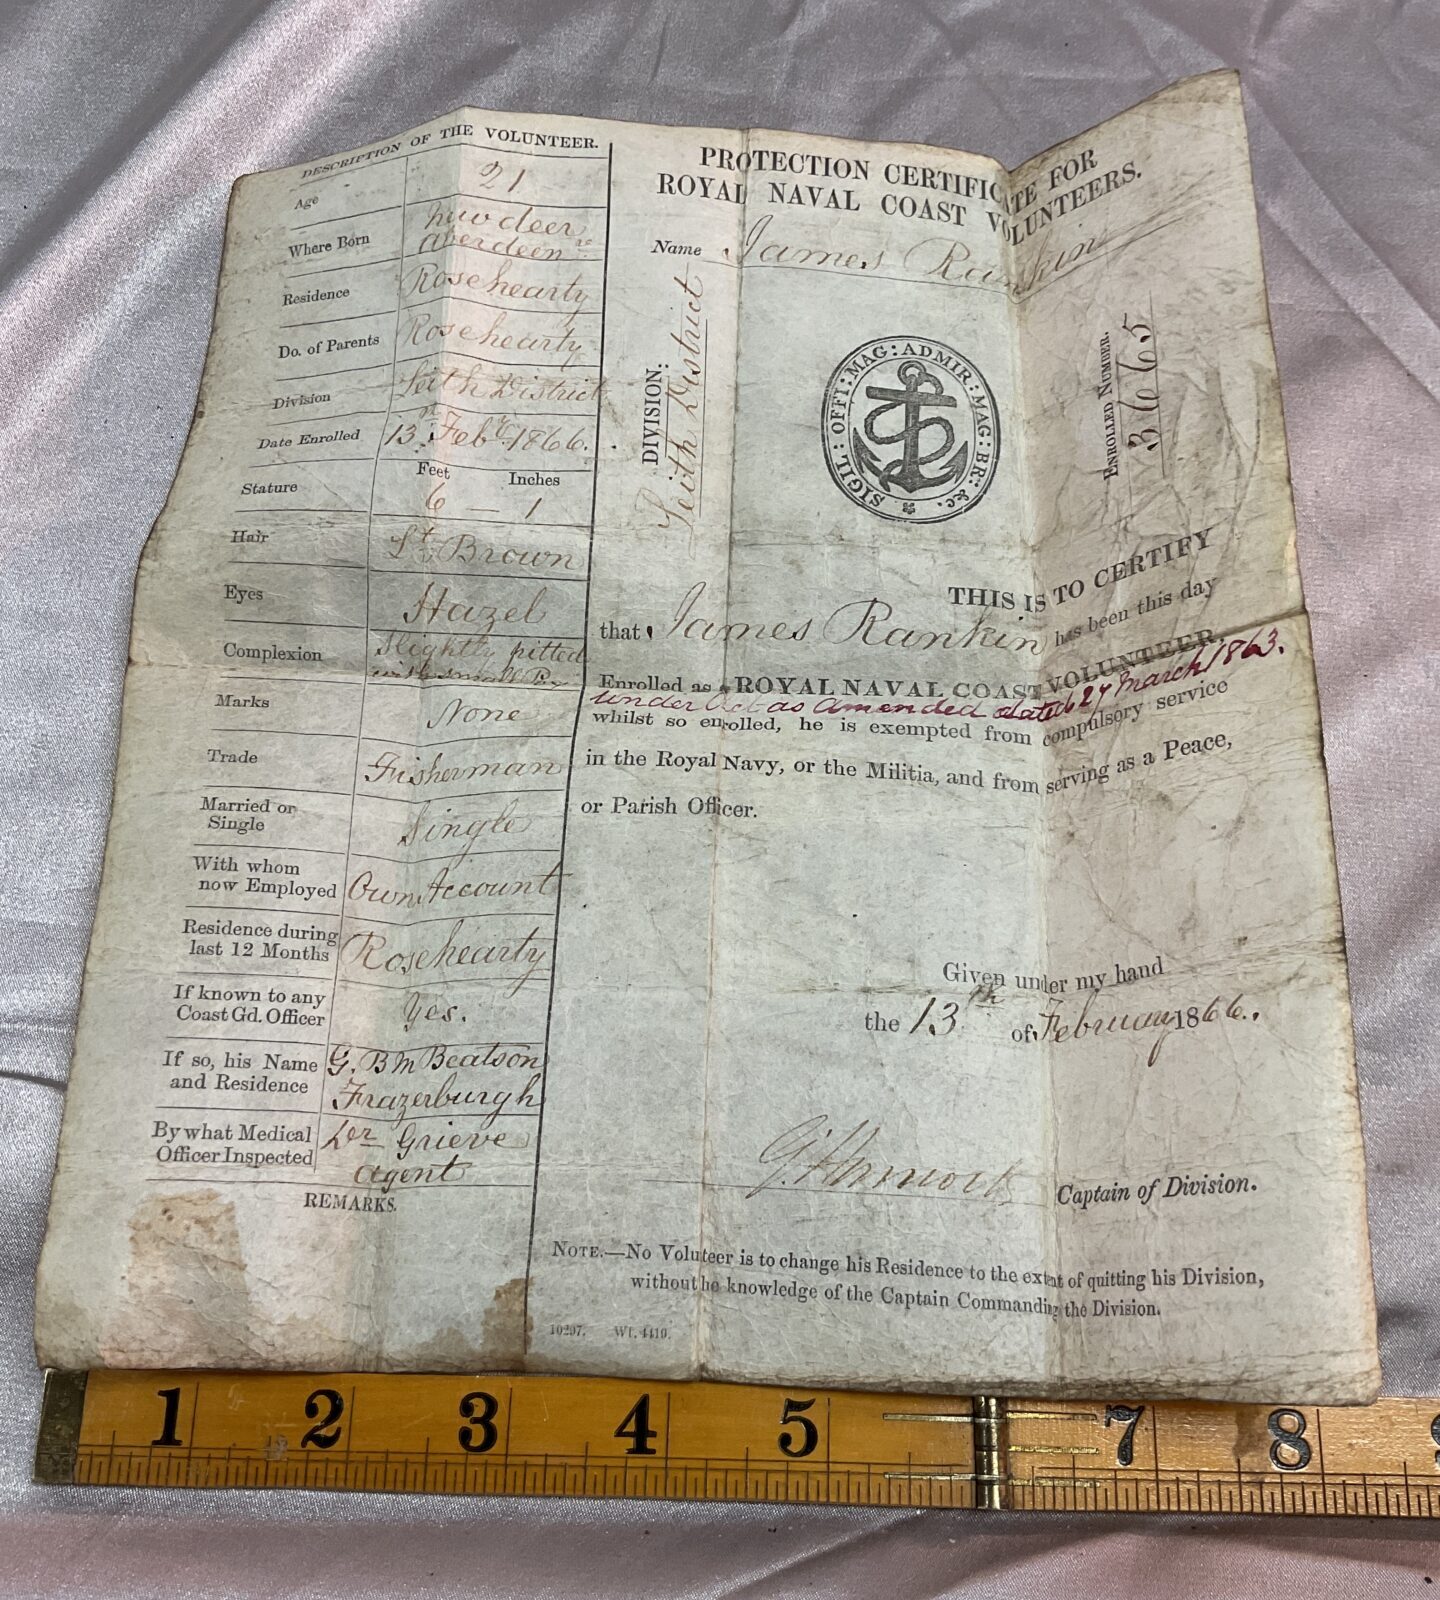 DESCRIPTION OF THE VOLUNTEER.
Age 21
Where Born New deer
Aberdeen re
Residence Rosehearty
Do. of Parents Rosehearty
Division Leith District
Date Enrolled 13th Feby 1866.
Feet Inches
Stature 6 — 1
Hair Lt Brown
Eyes Hazel
Complexion Slightly pitted
with small Pox
Marks None
Trade Fisherman
Married or
Single Single
With whom
now Employed Own Account
Residence during
last 12 Months Rosehearty
If known to any
Coast Gd. Officer Yes.
If so, his Name
and Residence G. B M Beatson
Frazerburgh
By what Medical
Officer Inspected Dr Grieve
Agent
REMARKS.
PROTECTION CERTIFICATE FOR
ROYAL NAVAL COAST VOLUNTEERS.
Name James Rankin
DIVISION:
Leith District
SIGIL: OFFI: MAG: ADMIR: MAG: BR: &c.
ENROLLED NUMBER.
3665
THIS IS TO CERTIFY
that James Rankin has been this day
Enrolled as a ROYAL NAVAL COAST VOLUNTEER,
under Act as amended dated 27 March 1863.
whilst so enrolled, he is exempted from compulsory service
in the Royal Navy, or the Militia, and from serving as a Peace,
or Parish Officer.
Given under my hand
the 13th of February 1866.
Captain of Division.
NOTE.—No Voluteer is to change his Residence to the extent of quitting his Division,
without he knowledge of the Captain Commanding the Division.
10297. Wt. 4410.
1 2 3 4 5 7 8